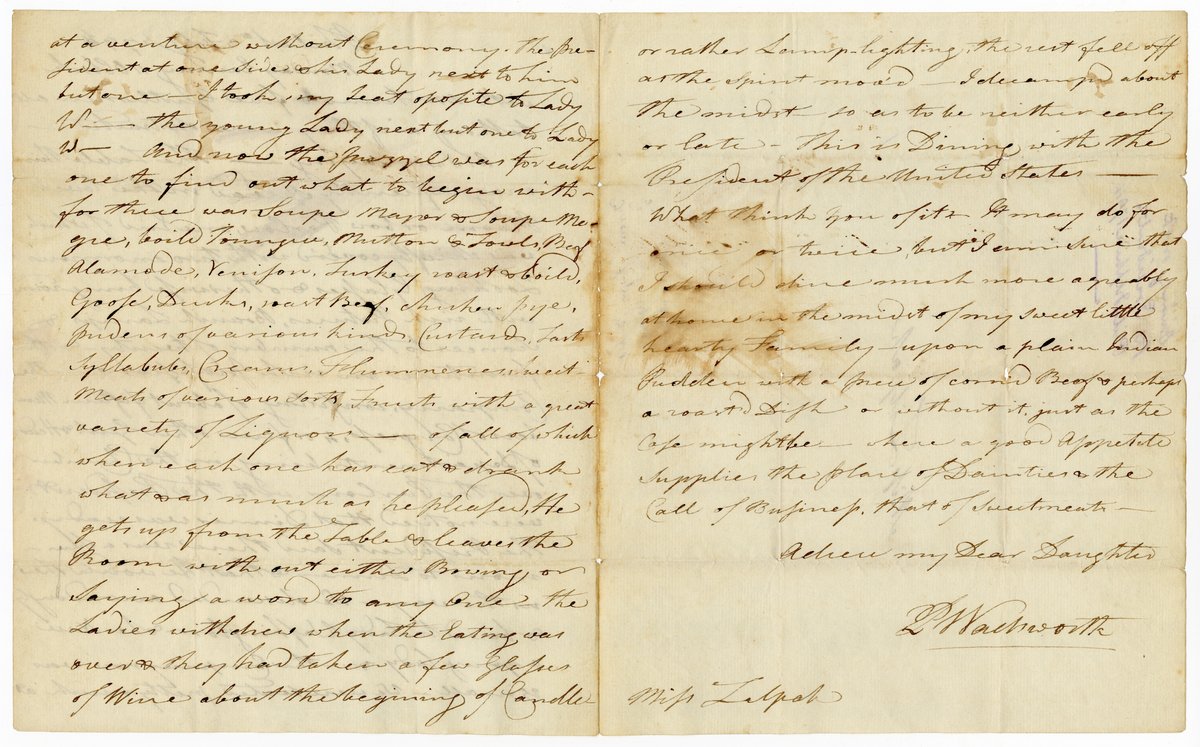 at a venture without Ceremony. the Pre-
sident at one side & his Lady next to him
but one — I took my Seat oposite to Lady
W — the young Lady next but one to Lady
W — And now the puzzel was for each
one to find out what to begin with —
for there was Soupe Major & Soupe Me-
gre, boild Toungue, Mutton & Fowls, Beef
Alamode, Venison, Turkey roast & boild,
Goose, Ducks, roast Beef, chicken pye,
pudens of various kinds, Custards, Tarts
Syllabubs, Creams, Flummenes sweet-
Meats of various Sorts, Fruits with a great
variety of Liquor — of all of which
when each one has eat & drank
what & as much as he pleased, He
gets up from the Table & leaves the
Room with out either Bowing or
Saying a word to any One the
Ladies withdrew when the Eating was
over & they had taken a few Glasses
of Wine about the begining of Candle
or rather Lamp-lighting, the rest fell off
as the spirit mov'd — I decamp'd about
the midst — so as to be neither early
or late — This is Dining with the
President of the United States —
What think you of it — It may do for
once or twice, but I am sure that
I should dine much more agreeably
at home in the midst of my sweet little
hearty Family — upon a plain Indian
Pudden with a piece of corn'd Beef & perhaps
a roast'd Dish or without it, just as the
Case might be — where a good Appetite
supplies the place of Dainties & the
Call of Business, that of Sweetmeats —
Adieu my Dear Daughter
P Wadsworth
Miss Zilpah